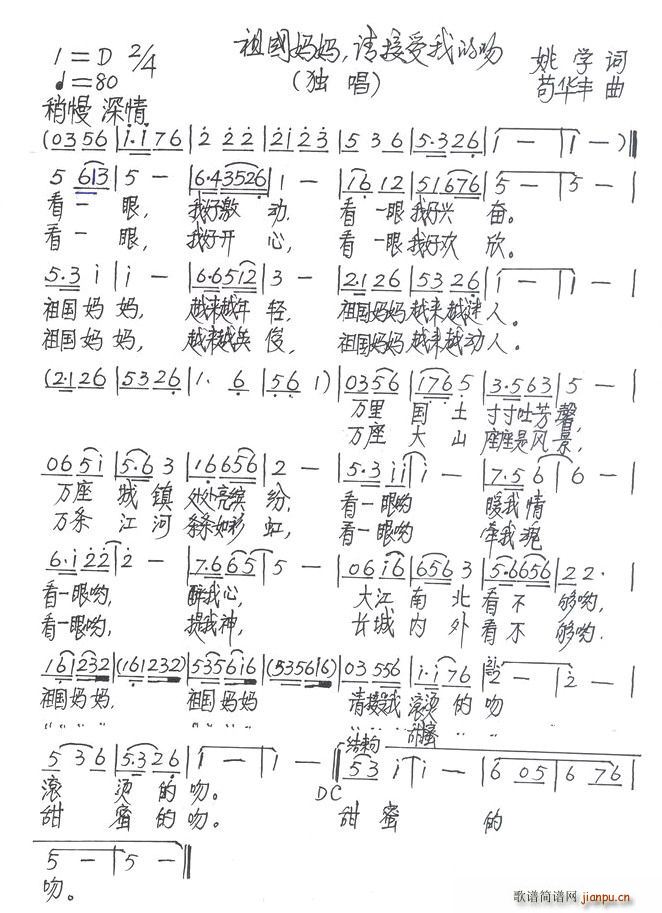 祖国妈妈,请接受我的吻
1=D 2/4
♩=80
(独唱)
姚学词
苟华丰曲
稍慢 深情
(0356|i·i76|2 2 2|2i23|5 3 6|5·326|1 —|1 —)‖
5 613|5 —|6·43526|1 —|16 12|51676|5 —|5 —|
看一眼, 我好激动, 看一眼我好兴奋。
看一眼, 我好开心, 看一眼我好欢欣。
5·3 i|i —|6·6512|3 —|2·126|5326|1 —|1 —|
祖国妈妈, 越来越年轻, 祖国妈妈越来越迷人。
祖国妈妈, 越来越英俊, 祖国妈妈越来越动人。
(2·126|5326|1· 6|56 1)|0356|176 5|3·563|5 —|
万里国土寸寸吐芳馨,
万座大山座座是风景,
065i|5·6 3|16656|2 —|5·3 ii|i —|7·5 6|6 —|
万座城镇处处亮缤纷, 看一眼哟 暖我情
万条江河条条如彩虹, 看一眼哟 牵我魂
6·i22|2 —|7·665|5 —|06i6|656 3|5·6656|22·|
看一眼哟, 醉我心, 大江南北看不够哟,
看一眼哟, 提我神, 长城内外看不够哟.
16232|(161232)|5356i6|(535616)|03 556|i·i76|2 —|2 —|
祖国妈妈, 祖国妈妈 请接受我滚烫的吻
" " " " " " " " " " " 甜蜜 " "
5 36|5·326|1 —|1 —‖结束句 53 i|i —|6 05|6 76|
滚烫的吻。 DC
甜蜜的吻。 甜蜜的
5 —|5 —‖
吻。
歌谱简谱网
jianpu.cn